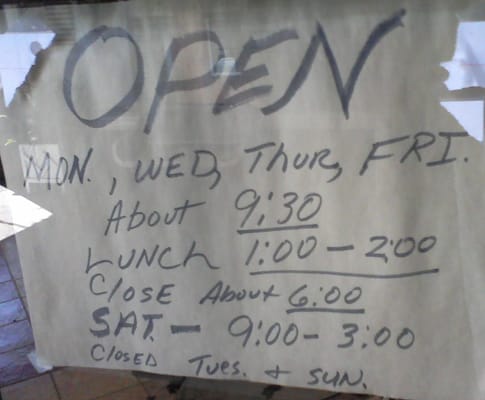 OPEN
MON., WED, Thur, FRI.
About 9:30
LUNCH 1:00 - 2:00
Close About 6:00
SAT. - 9:00 - 3:00
Closed Tues. & SUN.